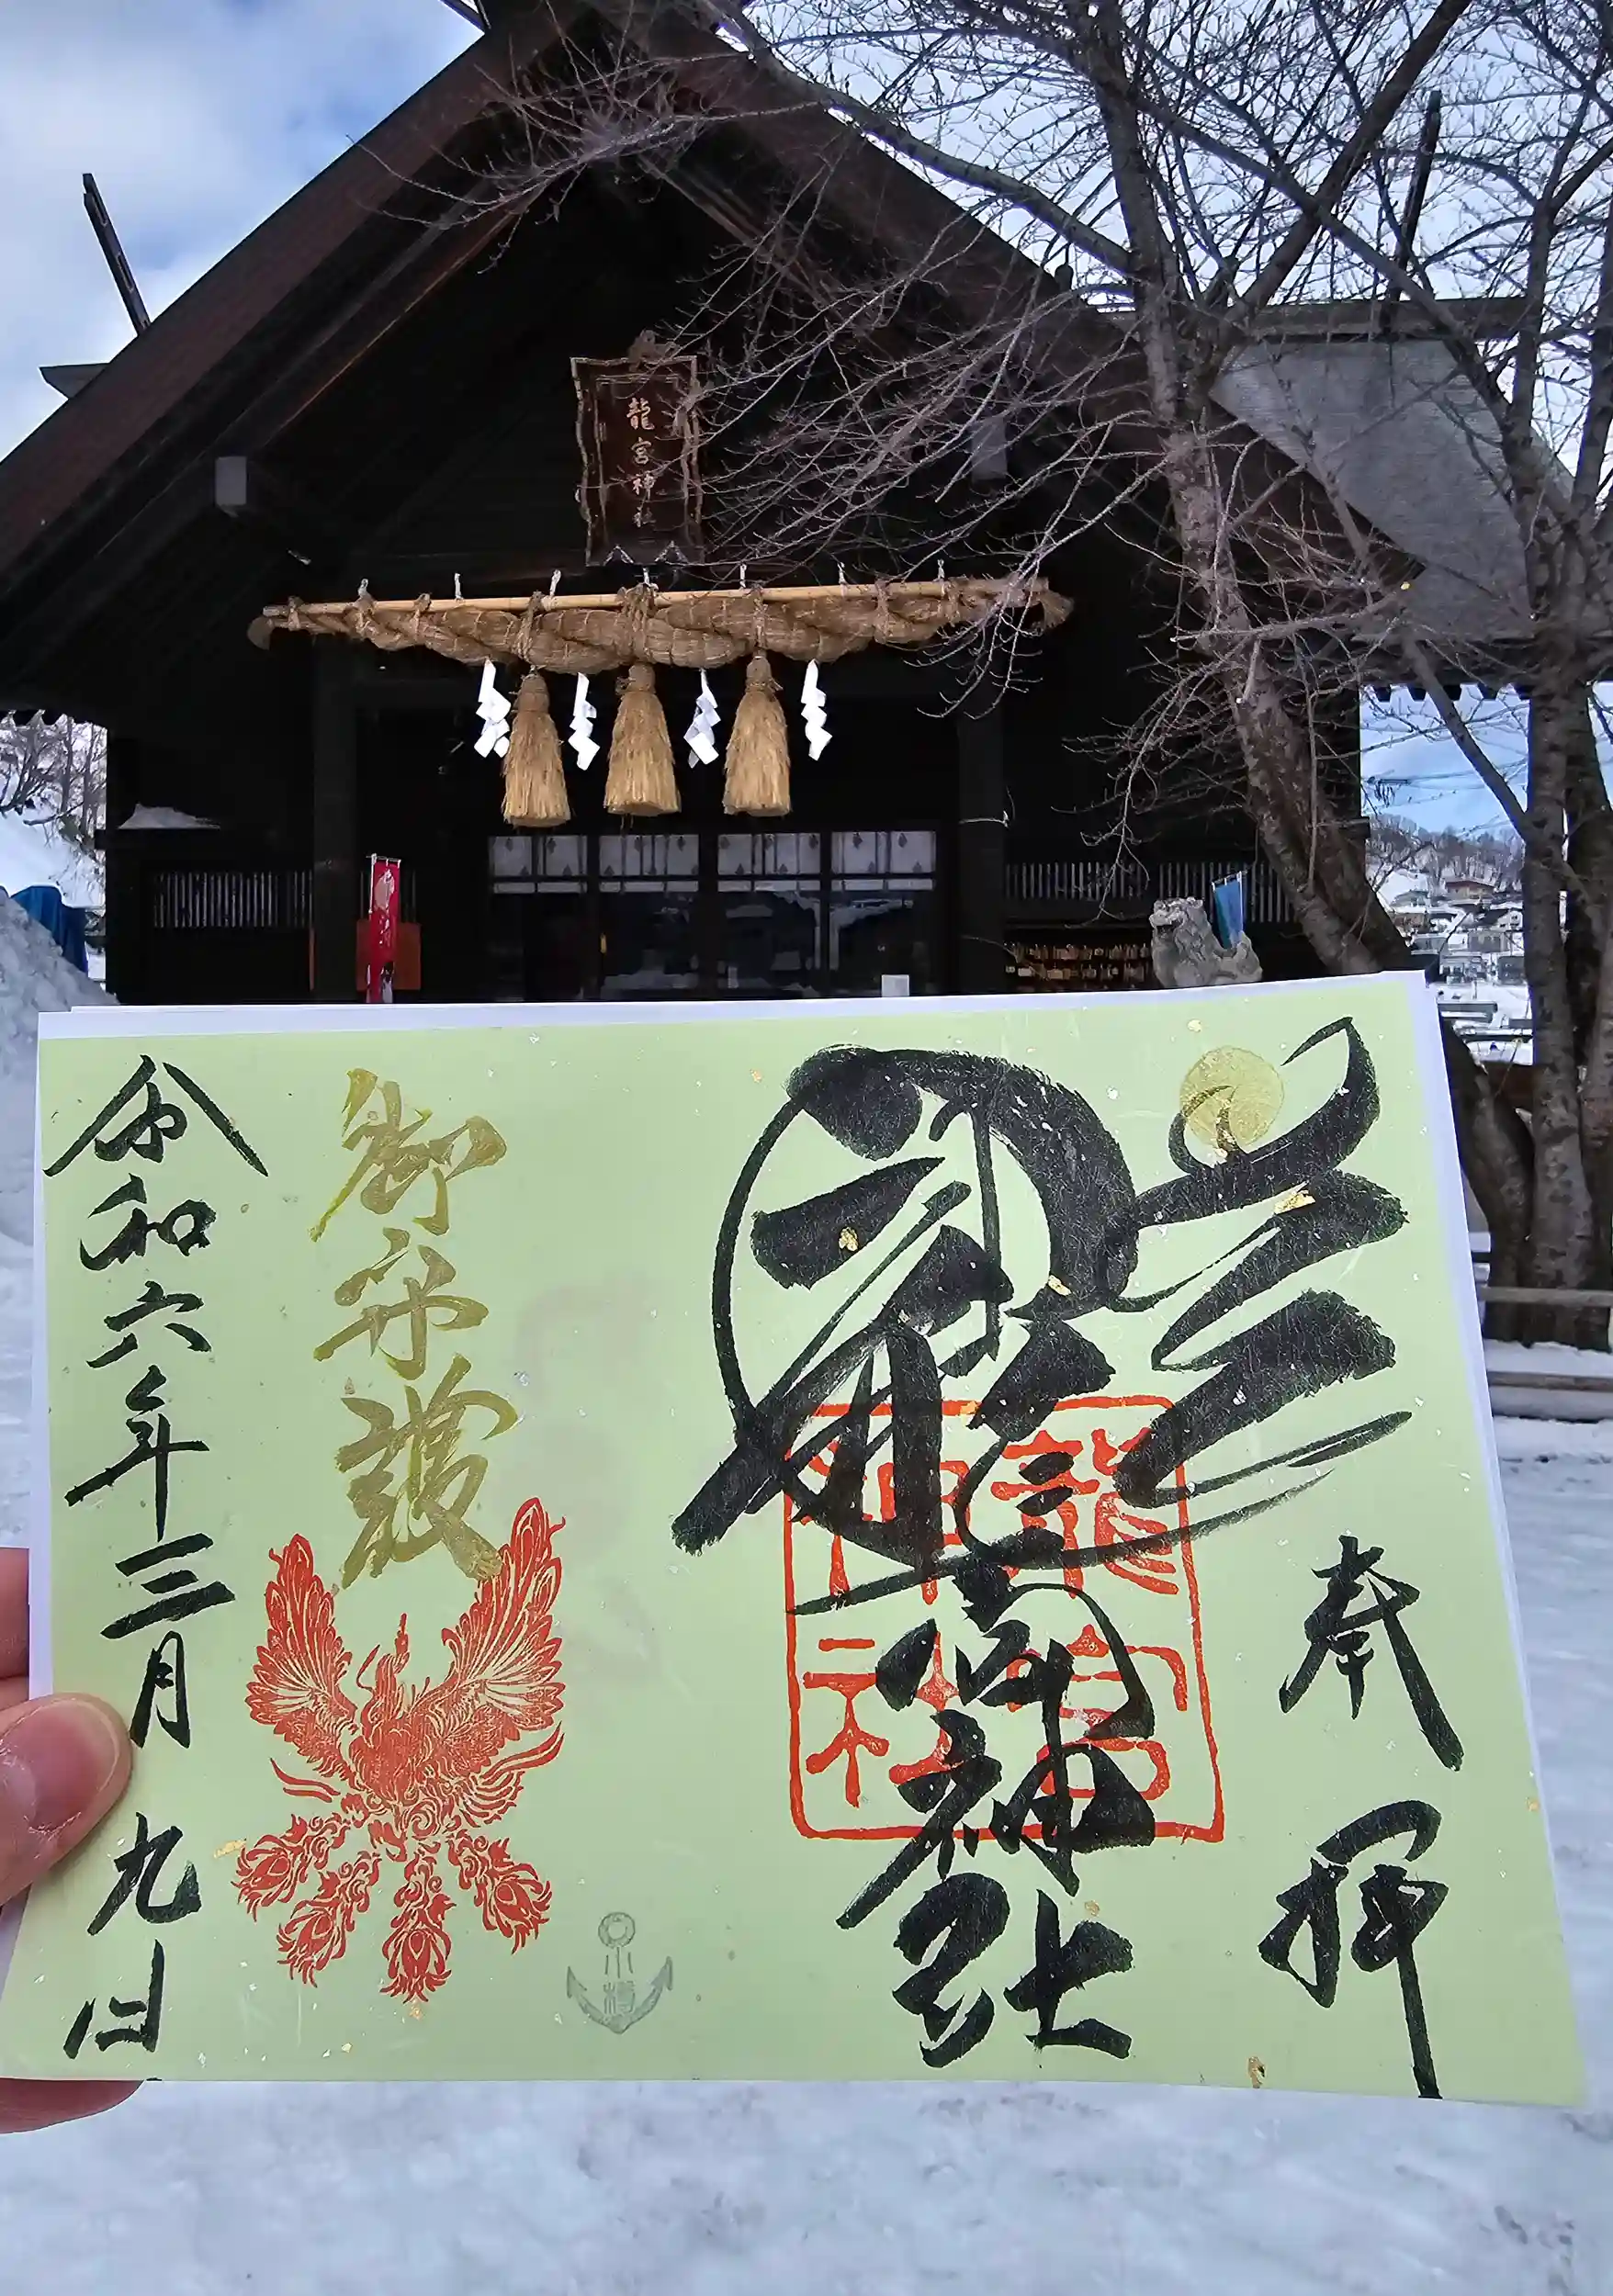 龍宮神社
奉拝
龍宮神社
龍宮
神社
御守護
小樽
令和六年三月九日